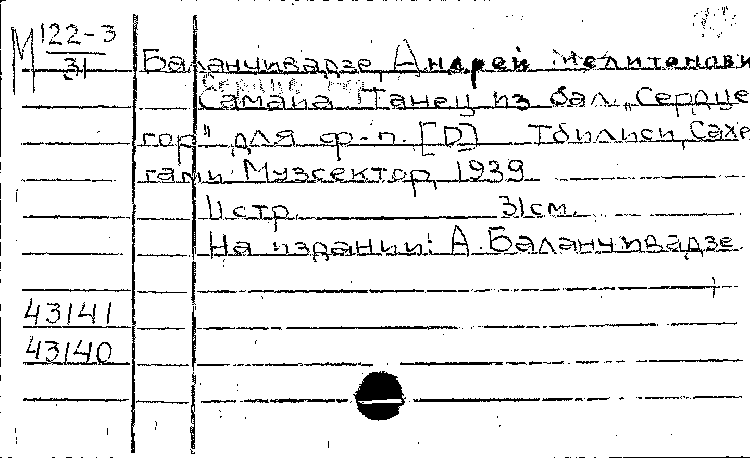 М 122-3
31
Баланчивадзе, Андрей Мелитонови
Самаиа. Танец из бал. „Сердце
гор" для ф-п. [D] Тбилиси, Сахе
гами Музсектор, 1939
11 стр. 31 см.
На издании: А. Баланчивадзе
43141
43140